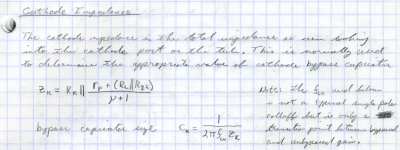 Cathode Impedance
The cathode impedance is the total impedance as seen looking
into the cathode port on the tube. This is normally used
to determine the appropriate value of cathode bypass capacitor
Z_K = R_K || (r_p + (R_L || R_g2)) / (μ + 1)
Note: the f_co used below
is not a typical single pole
rolloff but is only a
transition point between bypassed
and unbypassed gain.
bypass capacitor size C_K = 1 / (2π f_co Z_K)